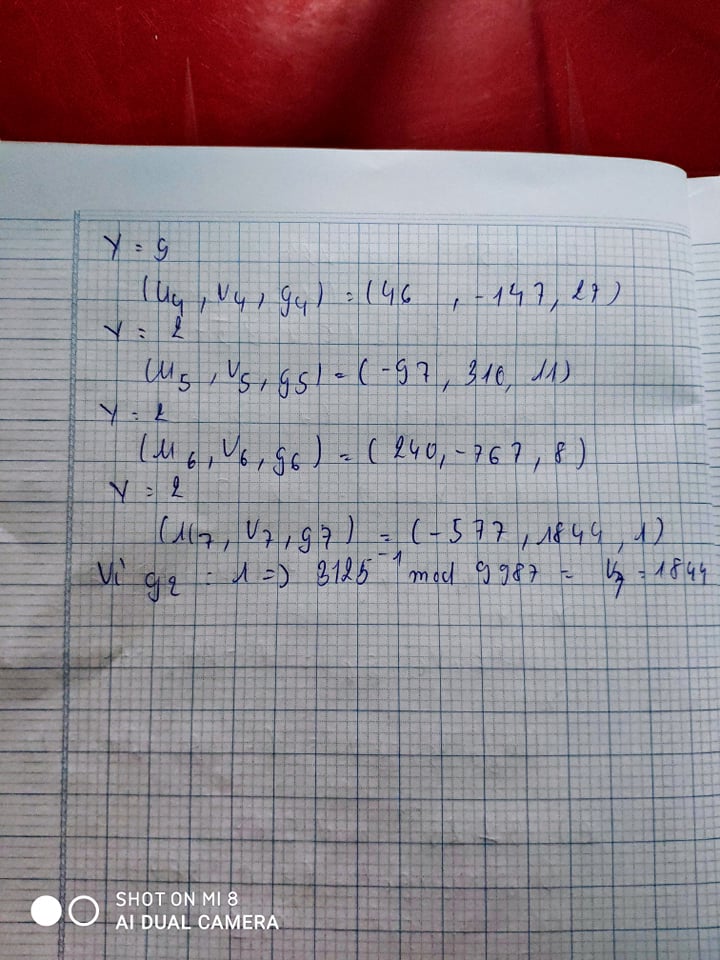 y = 9
(u4, v4, g4) = (46, -147, 27)
y = 2
(u5, v5, g5) = (-97, 310, 11)
y = 2
(u6, v6, g6) = (240, -767, 8)
y = 2
(u7, v7, g7) = (-577, 1844, 1)
Vì g2 = 1 => 3125⁻¹ mod 9987 = v7 = 1844
SHOT ON MI 8
AI DUAL CAMERA